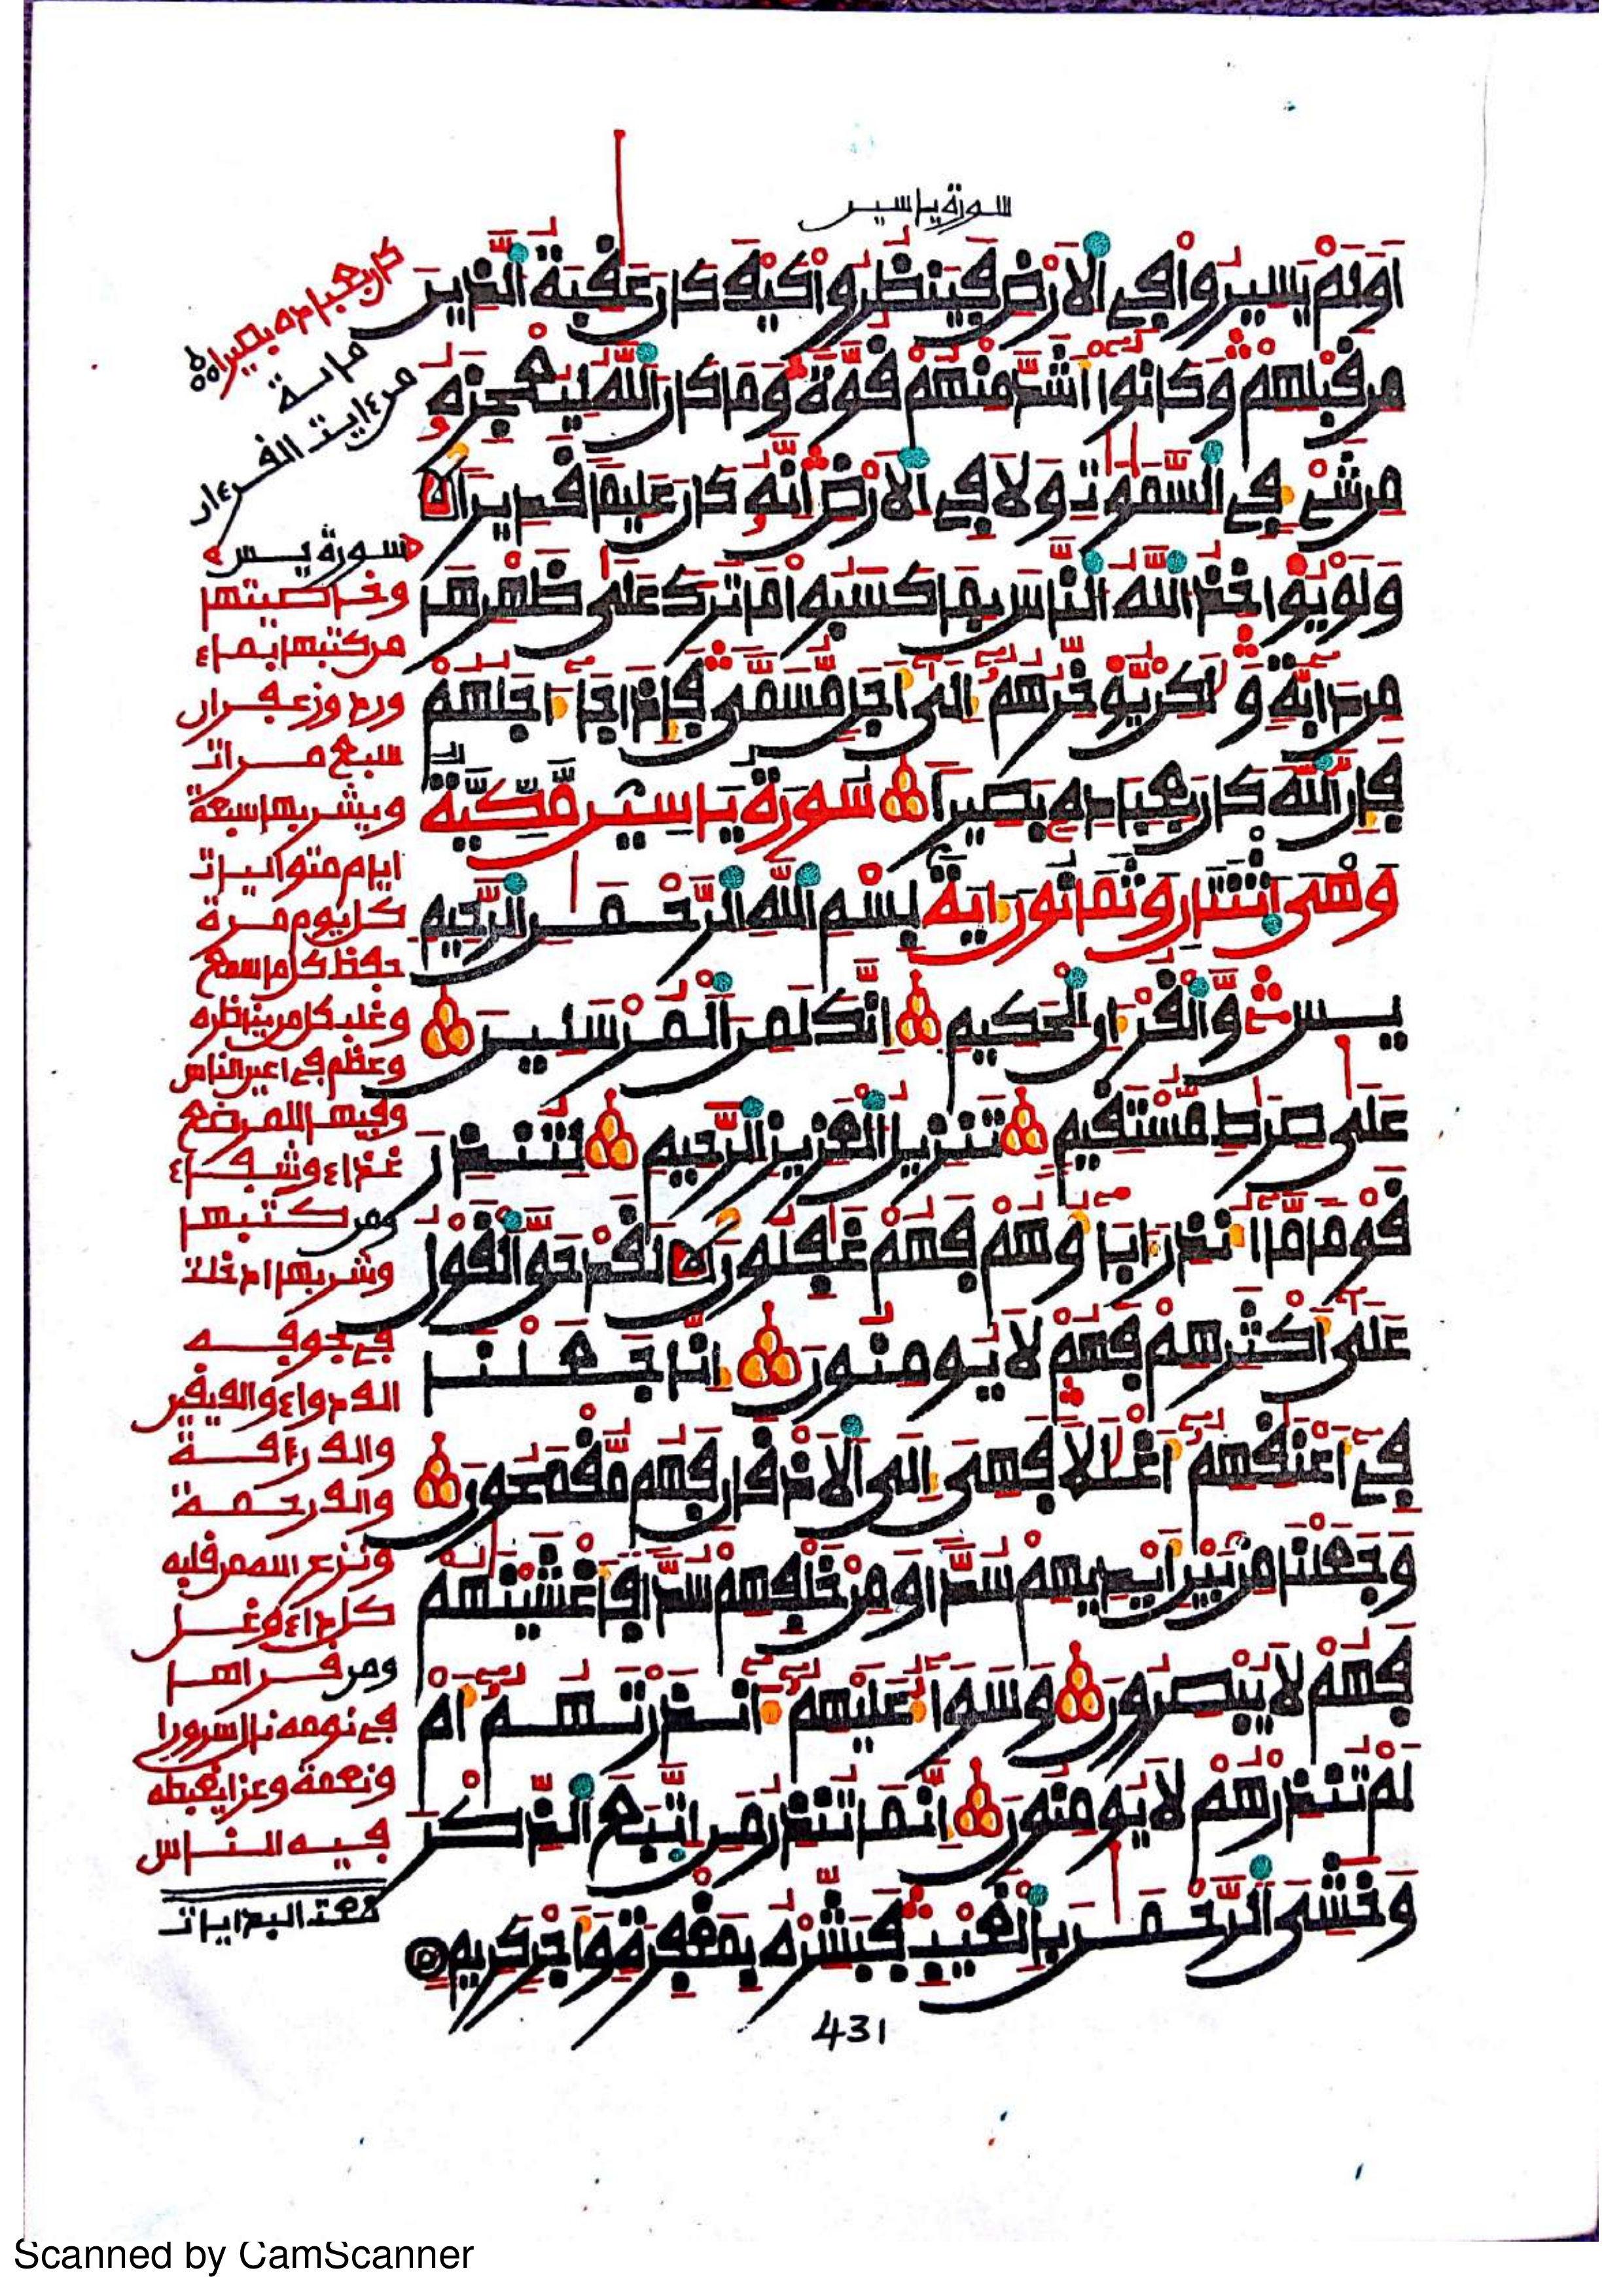 سورة ياسين
اَوَلَمْ يَسِيرُواْ فِي اِلَارْضِ فَيَنظُرُواْ كَيْفَ كَانَ عَٰقِبَةُ اُلذِينَ
مِن قَبْلِهِمْ وَكَانُواْ أَشَدَّ مِنْهُمْ قُوَّةً وَمَا كَانَ اَللَّهُ لِيُعْجِزَهُ
مِن شَيْءٍ فِي اِلسَّمَٰوَٰتِ وَلَا فِي اِلَارْضِ إِنَّهُ كَانَ عَلِيماً قَدِيراً
وَلَوْ يُوَاخِذُ اُللَّهُ اُلنَّاسَ بِمَا كَسَبُواْ مَا تَرَكَ عَلَىٰ ظَهْرِهَا
مِن دَابَّةٍ وَلَٰكِنْ يُوَخِّرُهُمُ إِلَىٰ أَجَلٍ مُّسَمّىً فَإِذَا جَا أَجَلُهُمْ
فَإِنَّ اَللَّهَ كَانَ بِعِبَادِهِ بَصِيراً سُورَةُ يَاسِين مَكِّيَّةٌ
وَهِيَ اثْنَتَانِ وَثَمَانُونَ ايَةً بِسْمِ اِللَّهِ اِلرَّحْمَٰنِ اِلرَّحِيمِ
يسٓ وَالْقُرْءَانِ اِلْحَكِيمِ إِنَّكَ لَمِنَ اَلْمُرْسَلِينَ
عَلَىٰ صِرَٰطٍ مُّسْتَقِيمٍ تَنزِيلُ اُلْعَزِيزِ اِلرَّحِيمِ لِتُنذِرَ
قَوْماً مَّا أُنذِرَ ءَابَاؤُهُمْ فَهُمْ غَٰفِلُونَ لَقَدْ حَقَّ اَلْقَوْلُ
عَلَىٰ أَكْثَرِهِمْ فَهُمْ لَا يُومِنُونَ إِنَّا جَعَلْنَا
فِي أَعْنَٰقِهِمُ أَغْلَٰلًا فَهِيَ إِلَى اَلَاذْقَانِ فَهُم مُّقْمَحُونَ
وَجَعَلْنَا مِنْ بَيْنِ أَيْدِيهِمْ سُدّاً وَمِنْ خَلْفِهِمْ سُدّاً فَأَغْشَيْنَٰهُمْ
فَهُمْ لَا يُبْصِرُونَ وَسَوَاءٌ عَلَيْهِمُ ءَانذَرْتَهُمُ أَمْ
لَمْ تُنذِرْهُمْ لَا يُومِنُونَ إِنَّمَا تُنذِرُ مَنِ اِتَّبَعَ اَلذِّكْرَ
وَخَشِيَ اَلرَّحْمَٰنَ بِالْغَيْبِ فَبَشِّرْهُ بِمَغْفِرَةٍ وَأَجْرٍ كَرِيمٍ
431
كان بعباده بصيرا
مائة
من ءايت القرءان
سورة يس
وخاصيتها
من كتبها بماء
ورد وزعفران
سبع مرات
ويشربها سبعة
ايام متواليات
كل يوم مرة
حفظ كل ما سمع
وغلب كل من يناظره
وعظم في اعين الناس
وفيها للمرضع
غذاء وشفاء
ومن كتبها
وشربها ادخلت
في جوفه
الف دواء والف يقين
والف رأفة
والف رحمة
ونزع الله من قلبه
كل داء وغل
ومن قراها
في نومه نال سرورا
ونعمة وعزا يغبطه
فيه الناس
تمت البدايات
Scanned by CamScanner